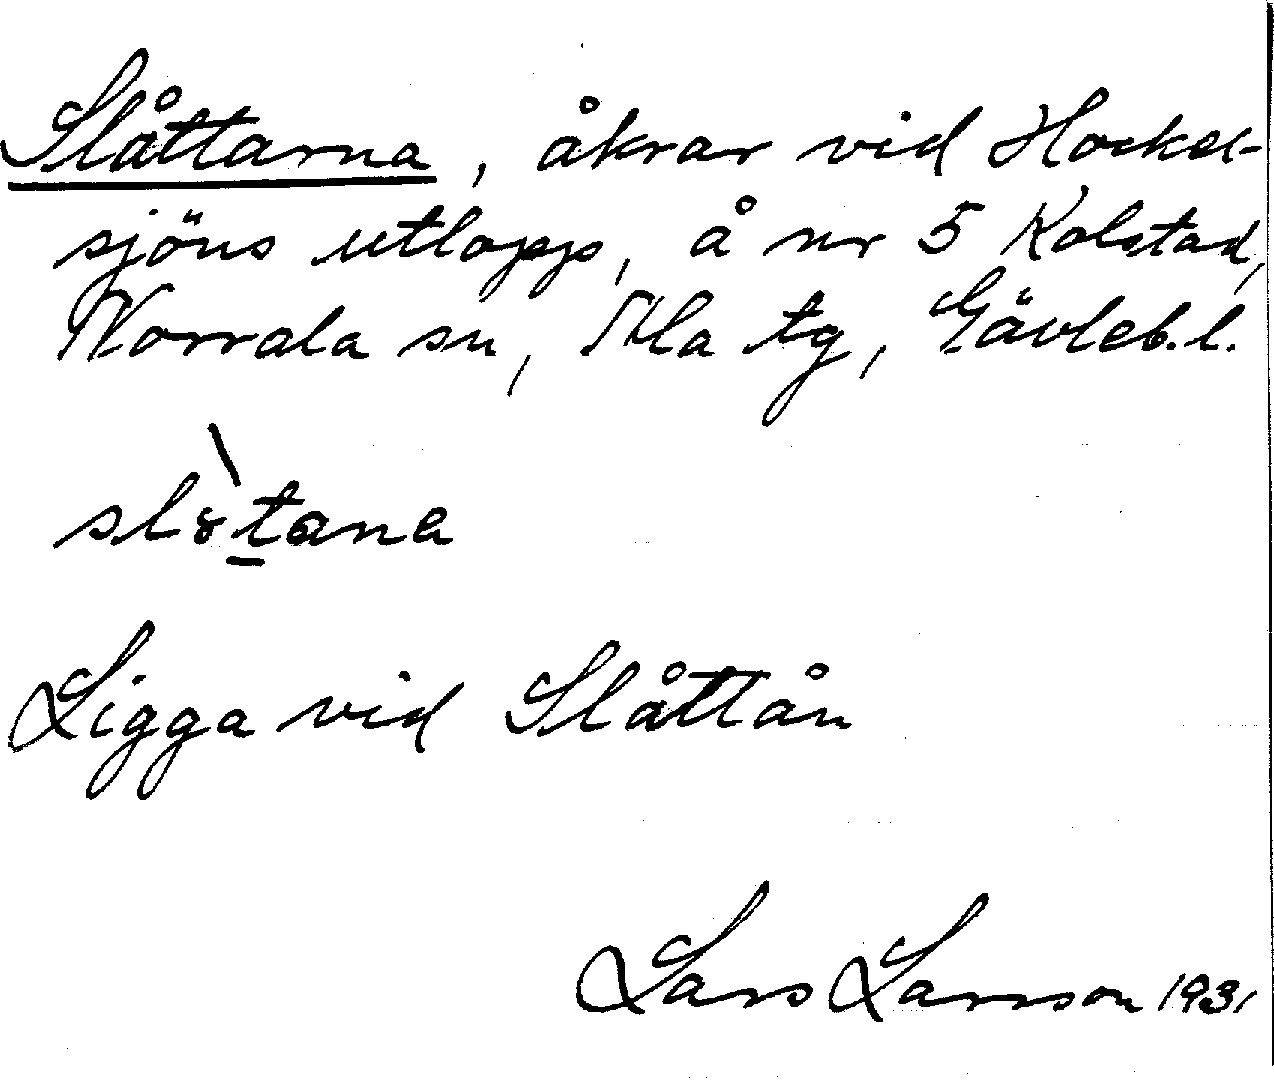 Slåttarna, åkrar vid Hockel-
sjöns utlopp, å nr 5 Kolstad,
Norrala sn, Ala tg, Gävleb.l.
slòtana
Ligga vid Slåttån
Lars Larsson 1931